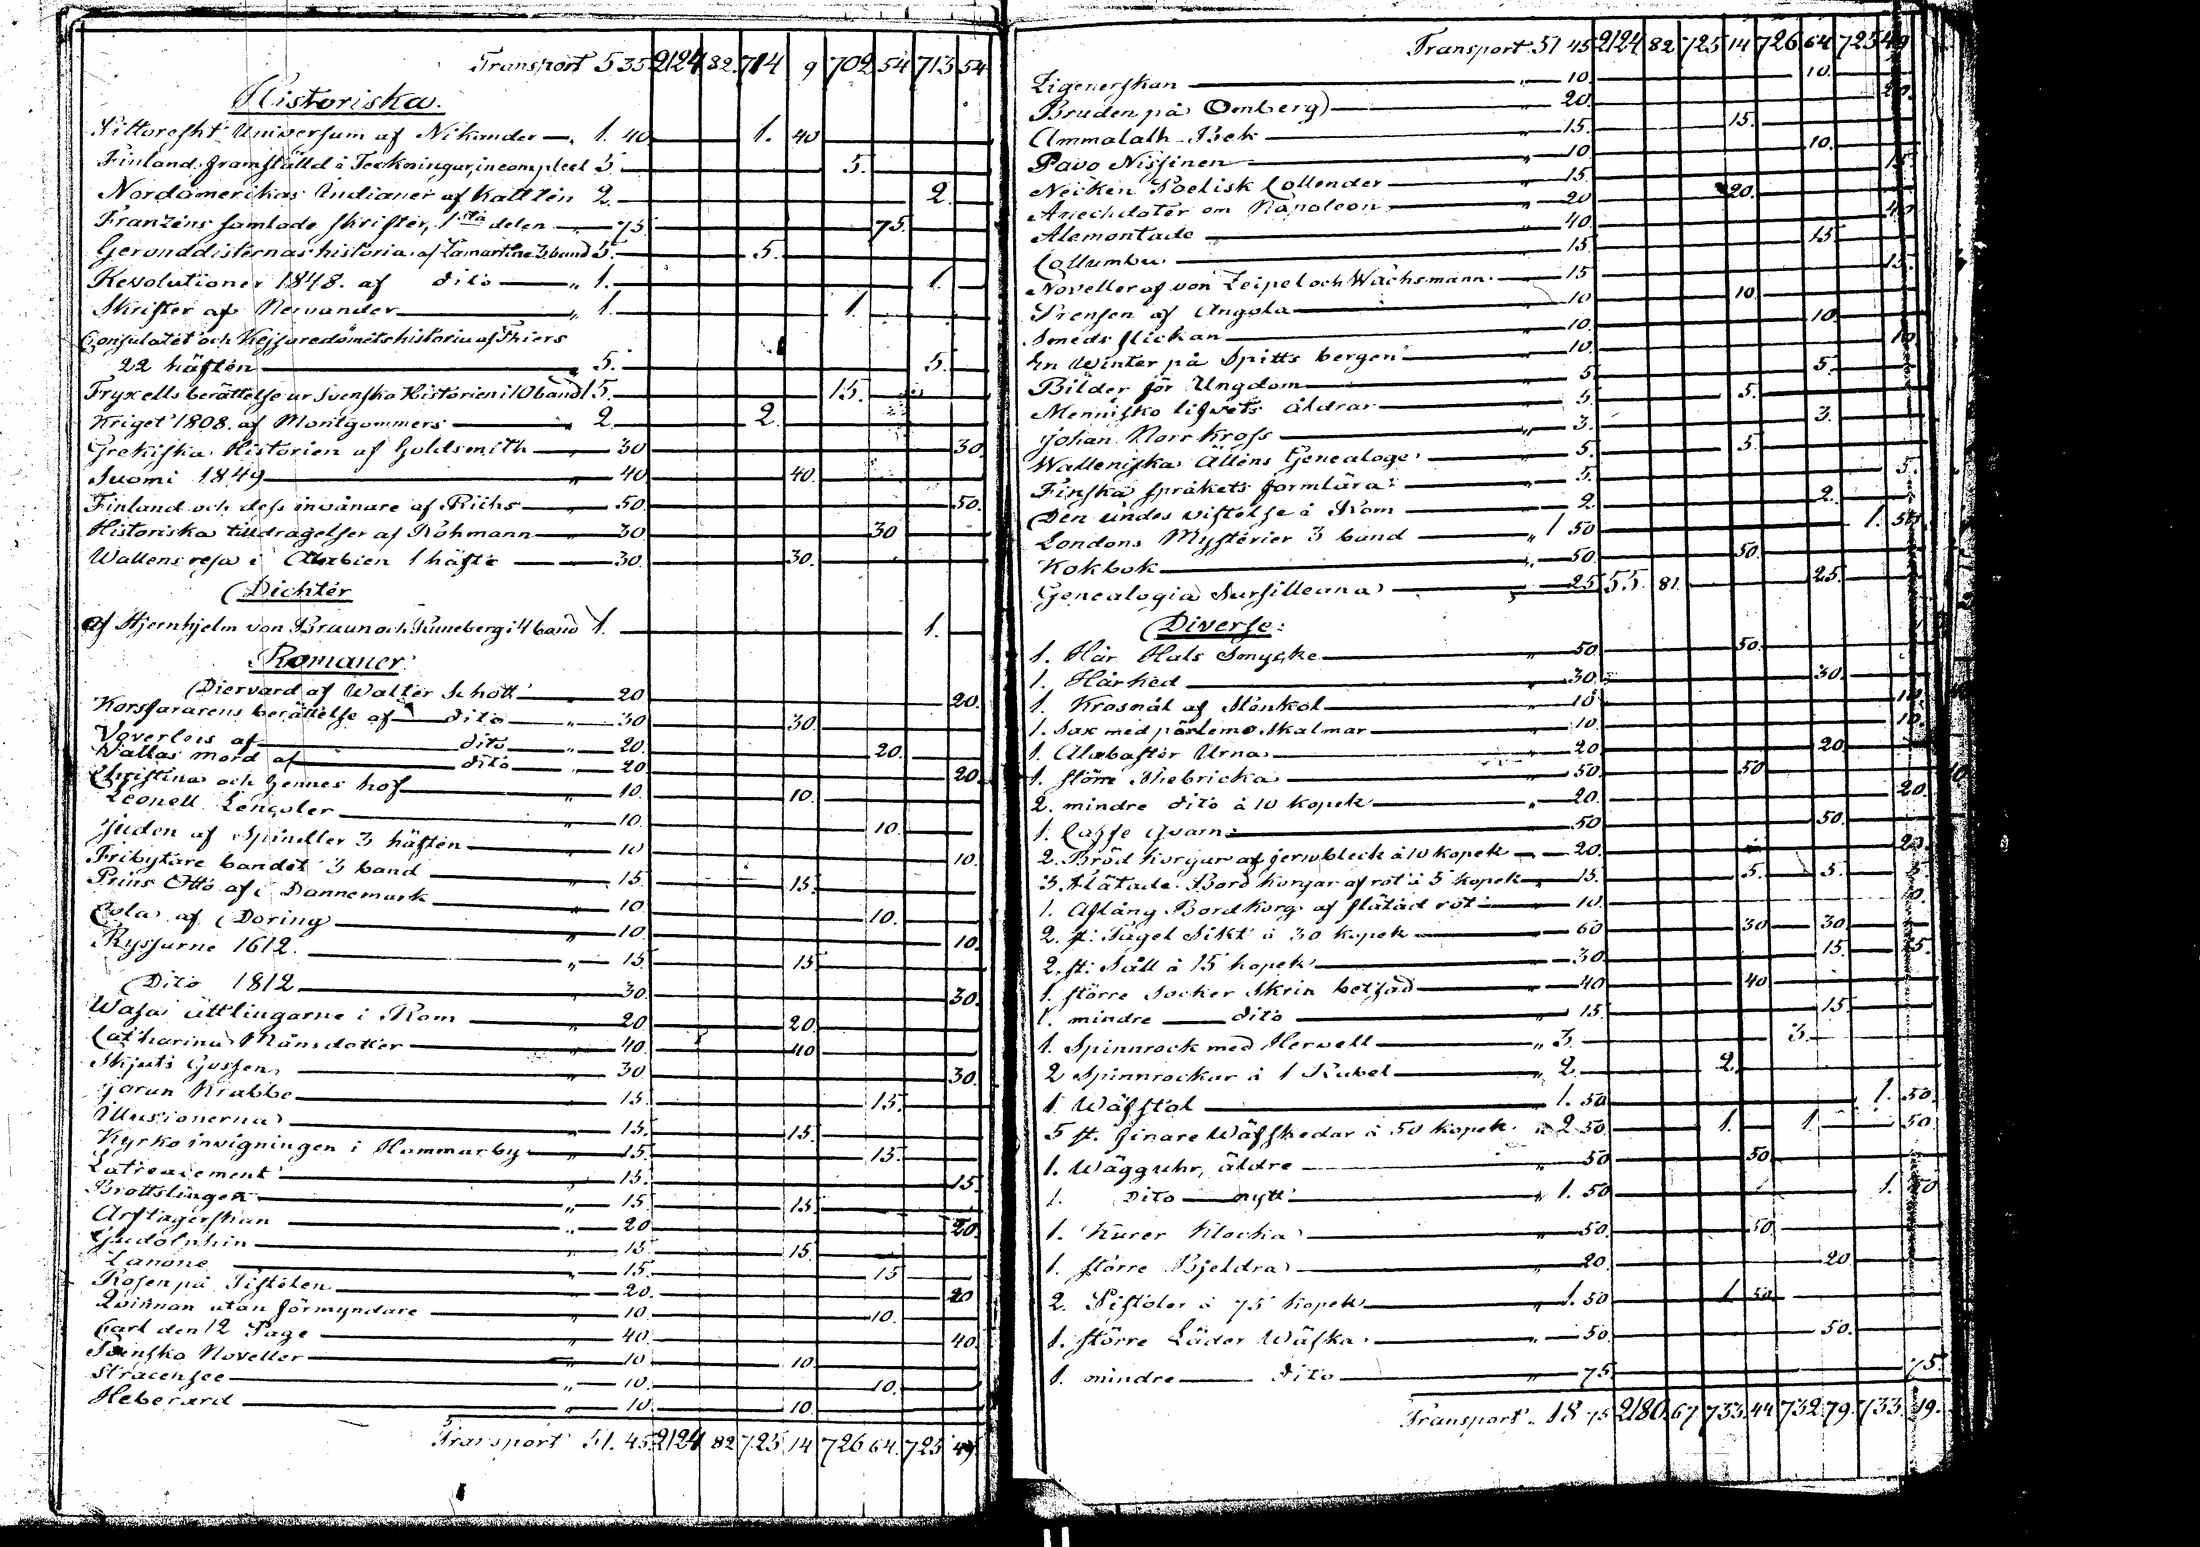 Transport 5 35 2124 82 714 9 702 54 713 54
Historiska.
Pittoreskt Universum af Nikander — „ 1. 40 1. 40
Finland framstäld i Teckningar, incomplect 5. 5.
Nordamerikas Indianer af Kattlin 2. 2.
Franzéns samlade skrifter, 1sta delen — „ 75. 75.
Gerondisternas historia af Lamartine 3 band 5. 5.
Revolutioner 1848. af dito — „ 1. 1.
Skrifter af Nervander — „ 1. 1.
Consulatet och Kejsaredömets historia af Thiers
22 häften — „ 5. 5.
Fryxells berättelse ur Svenska Historien i 10 band 15. 15.
Kriget 1808. af Montgommers — „ 2. 2.
Grekiska Historien af Goldsmith — „ 30 30.
Suomi 1849 — „ 40 40.
Finland och dess invånare af Rühs — „ 50. 50.
Historiska tilldragelser af Rohmann — „ 30 30
Wallens resa i Arabien 1 häfte — „ 30. 30.
Dichter
af Stjernhjelm von Braun och Runeberg i 4 band 1. 1.
Romaner
Diervard af Walter Schott — „ 20 20.
Korsfararens berättelse af dito — „ 30 30.
Voverleis af dito — „ 20. 20.
Wallas mord af dito — „ 20 20.
Christina och hennes hof — „ 10. 10.
Leonell Lencoler — „ 10. 10.
Juden af Spindler 3 häften — „ 10 10.
Fribytare bandet 3 band — „ 15. 15.
Prins Otto af Dannemark — „ 10. 10.
Cola af Doring — „ 10. 10.
Ryssarne 1612. — „ 15. 15
Dito 1812 — „ 30. 30.
Wasa ättlingarne i Rom — „ 20 20.
Catharina Månsdotter — „ 40. 40
Skjuts Gossen — „ 30 30.
Jorun Krabbe — „ 15. 15.
Illusionerna — „ 15. 15.
Kyrko invigningen i Hammarby — „ 15. 15.
Latreaument — „ 15. 15.
Brottslingen — „ 15 15.
Arftagerskan — „ 20 20.
Gudolphin — „ 15. 15.
Lanone — „ 15. 15
Rosen på Tistelen — „ 20. 20
Qvinnan utan förmyndare — „ 10. 10.
Carl den 12 Page — „ 40. 40
Svenska Noveller — „ 10. 10.
Struensee — „ 10. 10.
Heberard — „ 10. 10.
Transport 51. 45 2124 82 725 14 726 64. 725 49
Transport 51 45 2124 82 725 14 726 64 725 49
Zigenerskan — „ 10. 10.
Bruden på Omberg — „ 20. 20.
Ammalath Bek — „ 15. 15.
Pavo Nissinen — „ 10. 10.
Neiken Poetisk Collender — „ 15. 15
Anechdoter om Napoleon — „ 20 20.
Alamontade — „ 40 40
Collumba — „ 15 15
Noveller af von Zeipel och Wachsmann — „ 15 15.
Prensen af Angola — „ 10 10.
Smeds flickan — „ 10. 10.
En Winter på Spitts bergen — „ 10. 10
Bilder för Ungdom — „ 5. 5.
Mennisko lifvets åldrar — „ 5. 5.
Johan Norrkross — „ 3. 3.
Walleniska Ättens Genealoge — „ 5. 5.
Finska språkets formlära — „ 5. 5.
Den undes vistelse i Rom — „ 2. 2.
Londons Mysterier 3 band — „ 1 50 1. 50.
Kokbok — „ 50. 50.
Genealogia Sursilleana — 25 55. 81. 25.
Diverse:
1. Hår Hals Smycke — „ 50 50.
1. Hårked — „ 30. 30.
1. Krosnål af Stenkol — 10 10.
1. Sax med pärlemo. Skalmar — „ 10. 10.
1. Alabaster Urna — „ 20 20
1. större Thebricka — „ 50. 50
2. mindre dito à 10 kopek — „ 20. 20.
1. Caffe Qvarn — 50 50.
2. Bröd korgar af jernbleck à 10 kopek — 20. 20.
3. flätade Bord korgar af rot à 5 kopek — „ 15. 5. 5. 5
1. Aflång Bord Korg af flätad rot — „ 10. 10.
2. st: Tagel Sikt à 30 kopek — 60 30 30.
2. st: Såll à 15 kopek — „ 30 15. 15.
1. större Socker Skrin betsad — „ 40 40
1. mindre dito — „ 15. 15.
1. Spinnrock med Hervell — „ 3. 3.
2 Spinnrockar à 1 Rubel — „ 2. 2.
1 Wäfstol — 1. 50 1. 50.
5 st. finare Wäfskedar à 50 kopek „ 2 50. 1. 1. 50
1. Wägguhr, äldre — „ 50 50.
1. Dito nytt — „ 1. 50 1. 50
1. Kurer Klocka — „ 50. 50.
1. större Bjeldra — „ 20. 20.
2. Pistoler à 75 kopek — „ 1. 50 1 50.
1. större Läder Wäska — „ 50. 50.
1. mindre dito — „ 75. 75.
Transport. 18 75 2180. 67 733. 44 732. 79. 733. 19.